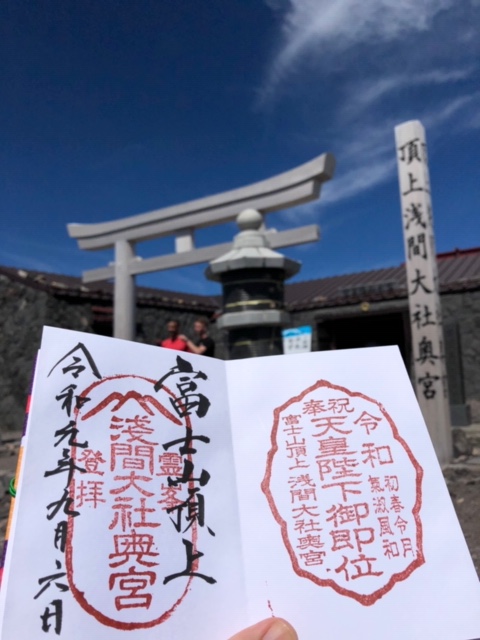 頂上浅間大社奥宮
富士山頂上
霊峯
浅間大社奥宮
登拝
令和元年九月六日
祝
奉
令和
初春令月
氣淑風和
天皇陛下御即位
富士山頂上浅間大社奥宮